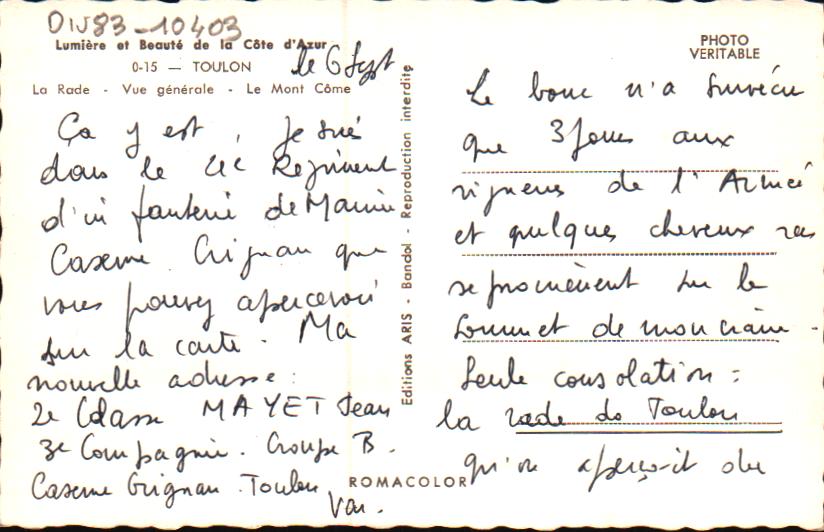 DIV83-10403
Lumière et Beauté de la Côte d'Azur
0-15 — TOULON
le 6 Sept
La Rade - Vue générale - Le Mont Côme
Ça y est, je suis
dans le 4è Régiment
d'infanterie de Marine
Caserne Grignan que
vous pouvez apercevoir
sur la carte. Ma
nouvelle adresse :
2e Classe MAYET Jean
3e Compagnie. Groupe B.
Caserne Grignan. Toulon
Var.
Editions ARIS - Bandol - Reproduction interdite
ROMACOLOR
PHOTO
VERITABLE
Le bouc n'a survécu
que 3 jours aux
rigueurs de l'Armée
et quelques cheveux ras
se promènent sur le
sommet de mon crâne.
Seule consolation :
la rade de Toulon
qu'on aperçoit du